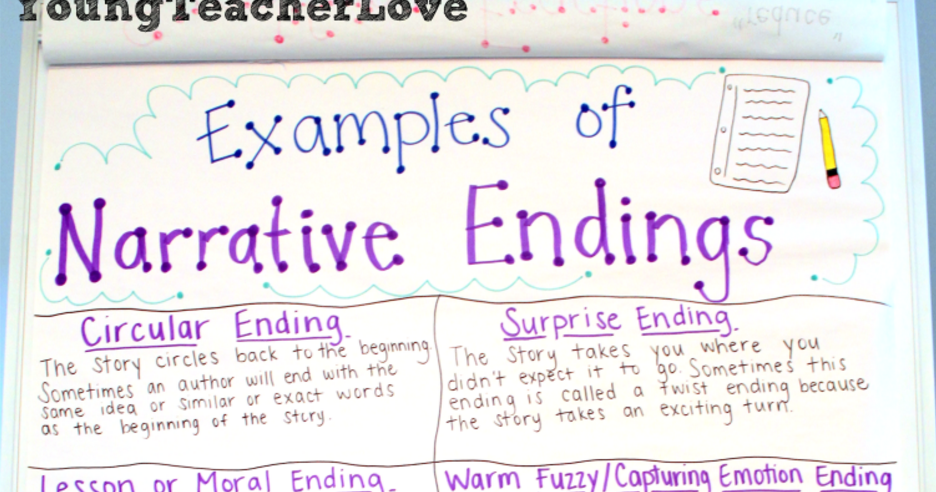 YoungTeacherLove
"reduce"
Examples of
Narrative Endings
Circular Ending.
The story circles back to the beginning.
Sometimes an author will end with the
same idea or similar or exact words
as the beginning of the story.
Surprise Ending.
The story takes you where you
didn't expect it to go. Sometimes this
ending is called a twist ending because
the story takes an exciting turn.
Lesson or Moral Ending.
Warm Fuzzy/Capturing Emotion Ending